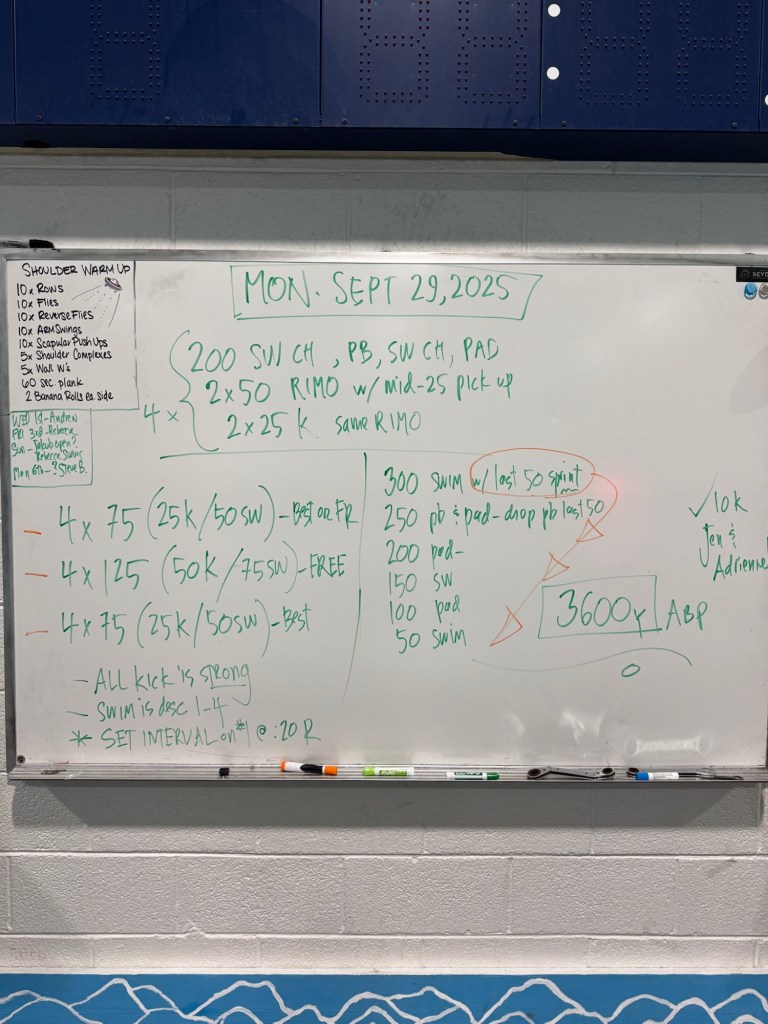 SHOULDER WARM UP
10x Rows
10x Flies
10x Reverse Flies
10x ARM Swings
10x Scapular Push Ups
5x Shoulder Complexes
5x Wall W's
60 sec. plank
2 Banana Rolls ea. side
WED 1st - Andrew
FRI 3rd - Rebecca
Sun - open?
Rebecca
Mon 6th - ? Steve B.
MON. SEPT 29, 2025
4x
200 SW CH, PB, SW CH, PAD
2x50 RIMO w/ mid-25 pick up
2x25 K same RIMO
- 4 x 75 (25K/50SW) - Best or FR
- 4 x 125 (50K/75SW) - FREE
- 4 x 75 (25K/50SW) - Best
- ALL kick is strong
- SWIM is desc 1-4
* SET INTERVAL on #1 @ :20 R
300 SWIM w/ last 50 sprint
250 pb & pad - drop pb last 50
200 pad-
150 SW
100 pad
50 swim
3600y ABP
✓ 10k
Jen &
Adrienne